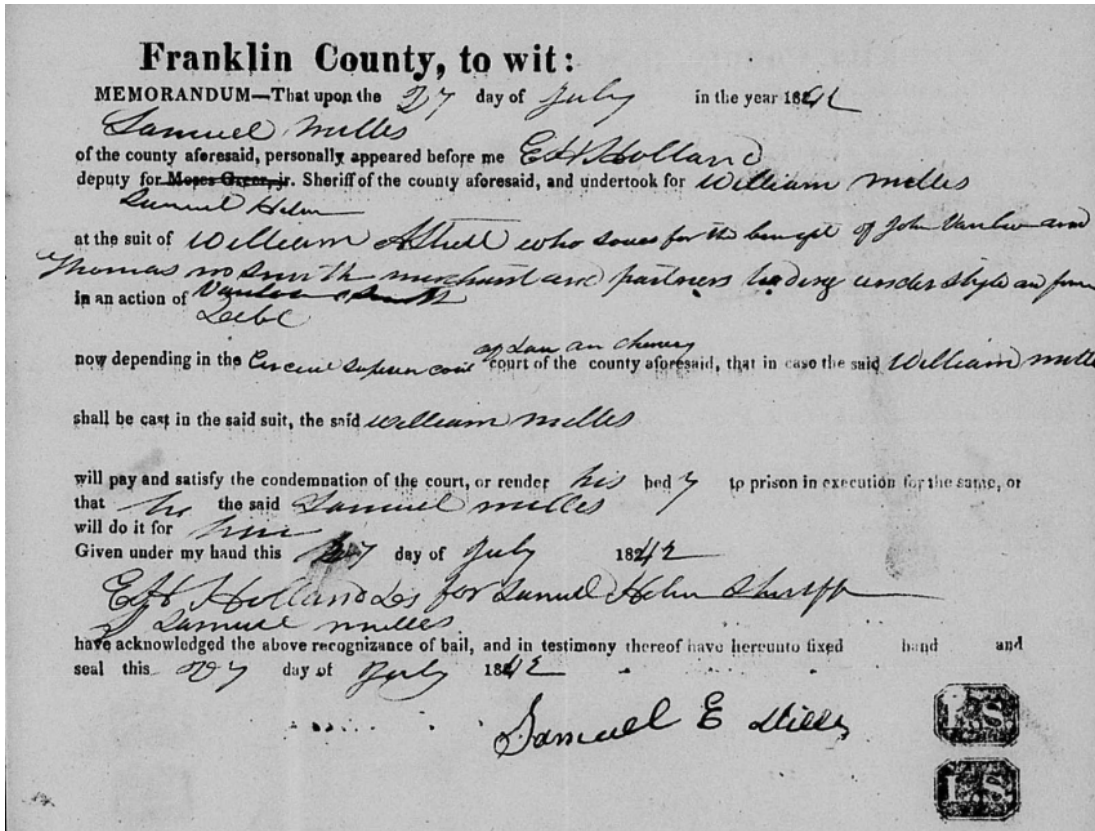 Franklin County, to wit:
MEMORANDUM—That upon the 27 day of July in the year 1842
Samuel Milles
of the county aforesaid, personally appeared before me E H Holland
deputy for Moses Greer, jr. Sheriff of the county aforesaid, and undertook for William Milles
Samuel Helm
at the suit of William who sues for the benefit of John and
Thomas Smith merchant and partners trading under style an firm
in an action of
Debt
of Law an
now depending in the court of the county aforesaid, that in case the said William Milles
shall be cast in the said suit, the said William Milles
will pay and satisfy the condemnation of the court, or render his body to prison in execution for the same, or
that he the said Samuel Milles
will do it for him
Given under my hand this 27 day of July 1842
E H Holland Ds for Samuel Helm Sheriff
I Samuel Milles
have acknowledged the above recognizance of bail, and in testimony thereof have hereunto fixed hand and
seal this 27 day of July 1842
Samuel E Mills
L S
L S